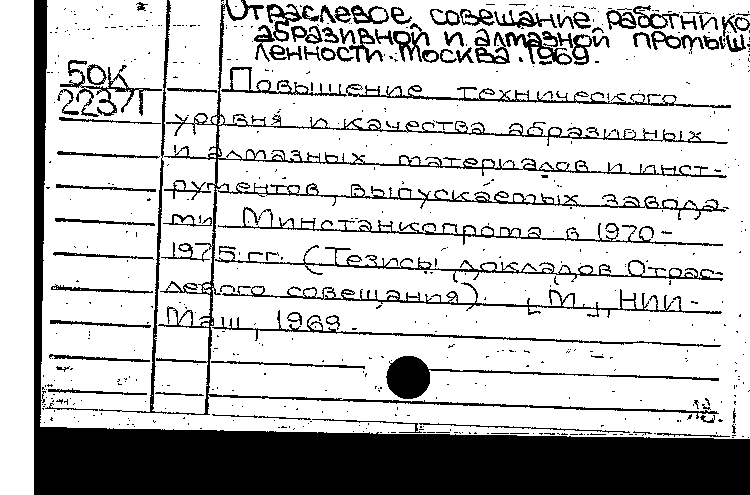 Отраслевое совещание работнико
абразивной и алмазной промыш
ленности. Москва. 1969.
50К
2237Т
Повышение технического
уровня и качества абразивных
и алмазных материалов и инст-
рументов, выпускаемых завода-
ми Минстанкопрома в 1970-
1975 гг. (Тезисы докладов Отрас-
левого совещания). [М.], НИИ-
Маш, 1969.